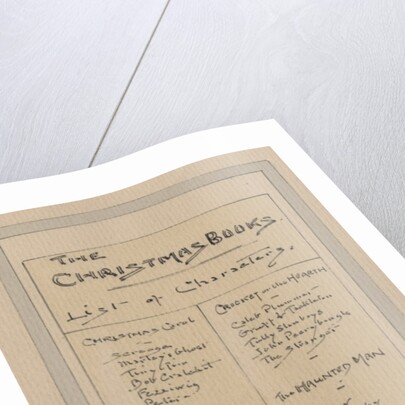 THE
CHRISTMAS BOOKS.
List of Characters.
CHRISTMAS Carol
Scrooge
Marley's Ghost
Tiny Tim
Bob Cratchit
Fezziwig
CRICKET on the HEARTH
Caleb Plummer
Gruff & Tackleton
Tilly Slowboy
John Peerybingle
The Stranger
The HAUNTED MAN